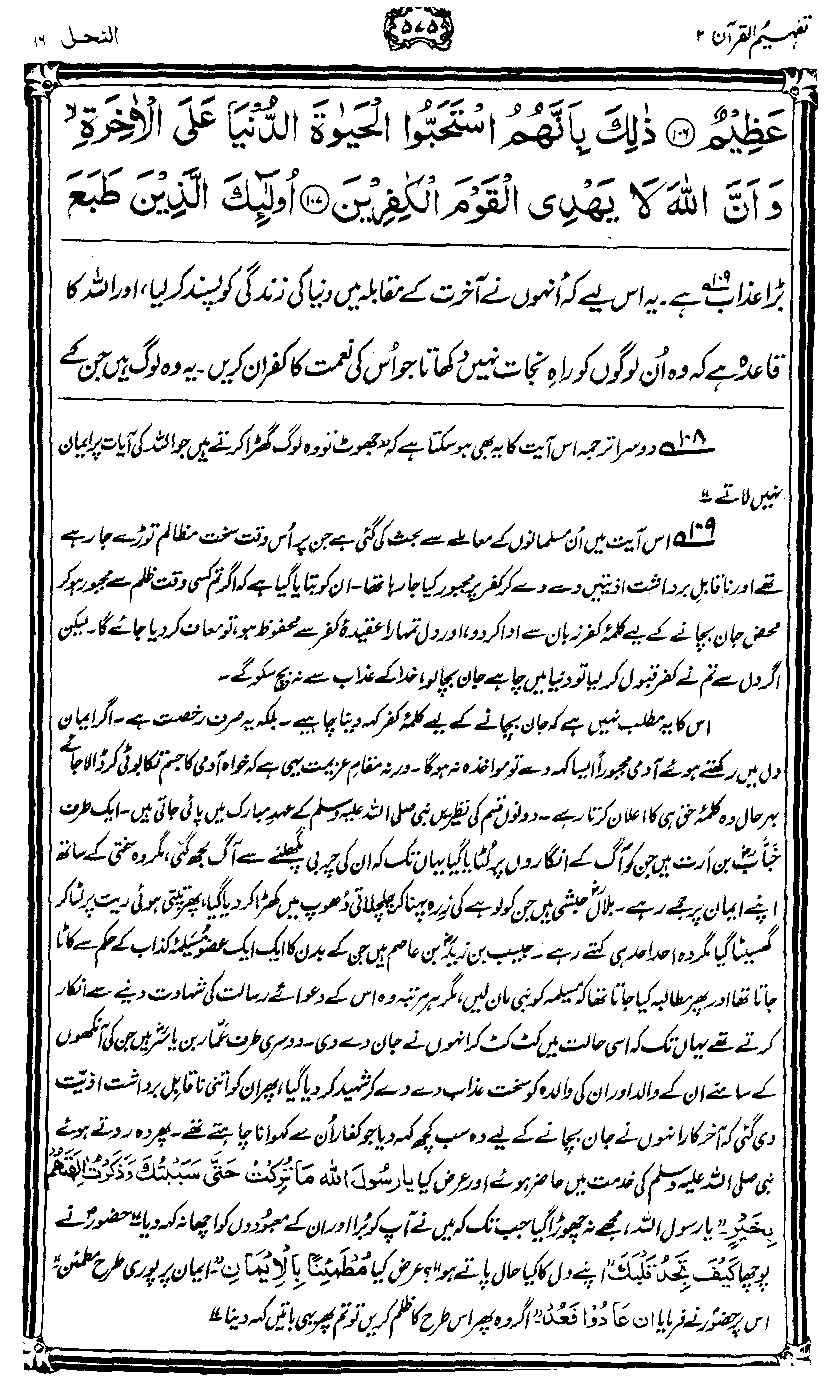 تفہیم القرآن ۲
۵۷۵
النحل ۱۶
عَظِیْمٌ ۱۰۶ ذٰلِکَ بِاَنَّہُمُ اسْتَحَبُّوا الْحَیٰوۃَ الدُّنْیَا عَلَی الْاٰخِرَۃِ ۙ
وَ اَنَّ اللہَ لَا یَہْدِی الْقَوْمَ الْکٰفِرِیْنَ ۱۰۷ اُولٰٓئِکَ الَّذِیْنَ طَبَعَ
بڑا عذاب ۱۰۹ ہے۔ یہ اس لیے کہ اُنہوں نے آخرت کے مقابلہ میں دنیا کی زندگی کو پسند کر لیا، اور اللہ کا
قاعدہ ہے کہ وہ اُن لوگوں کو راہِ نجات نہیں دکھاتا جو اُس کی نعمت کا کفران کریں۔ یہ وہ لوگ ہیں جن کے
۱۰۸ دوسرا ترجمہ اس آیت کا یہ بھی ہو سکتا ہے کہ ”جھوٹ تو وہ لوگ گھڑا کرتے ہیں جو اللہ کی آیات پر ایمان
نہیں لاتے“۔
۱۰۹ اس آیت میں اُن مسلمانوں کے معاملے سے بحث کی گئی ہے جن پر اُس وقت سخت مظالم توڑے جا رہے
تھے اور ناقابلِ برداشت اذیتیں دے دے کر کفر پر مجبور کیا جا رہا تھا۔ ان کو بتایا گیا ہے کہ اگر تم کسی وقت ظلم سے مجبور ہو کر
محض جان بچانے کے لیے کلمۂ کفر زبان سے ادا کر دو، اور دل تمہارا عقیدۂ کفر سے محفوظ ہو، تو معاف کر دیا جائے گا۔ لیکن
اگر دل سے تم نے کفر قبول کر لیا تو دنیا میں چاہے جان بچا لو، خدا کے عذاب سے نہ بچ سکو گے۔
اس کا یہ مطلب نہیں ہے کہ جان بچانے کے لیے کلمۂ کفر کہہ دینا چاہیے۔ بلکہ یہ صرف رخصت ہے۔ اگر ایمان
دل میں رکھتے ہوئے آدمی مجبوراً ایسا کہہ دے تو مواخذہ نہ ہوگا۔ ورنہ مقامِ عزیمت یہی ہے کہ خواہ آدمی کا جسم تکا بوٹی کر ڈالا جائے
بہر حال وہ کلمۂ حق ہی کا اعلان کرتا رہے۔ دونوں قسم کی نظیریں نبی صلی اللہ علیہ وسلم کے عہدِ مبارک میں پائی جاتی ہیں۔ ایک طرف
خبابؓ بن ارت ہیں جن کو آگ کے انگاروں پر لٹایا گیا یہاں تک کہ ان کی چربی پگھلنے سے آگ بجھ گئی، مگر وہ سختی کے ساتھ
اپنے ایمان پر جمے رہے۔ بلالؓ حبشی ہیں جن کو لوہے کی زرہ پہنا کر چلچلاتی دُھوپ میں کھڑا کر دیا گیا، پھر تپتی ہوئی ریت پر لٹا کر
گھسیٹا گیا مگر وہ احد احد ہی کہتے رہے۔ حبیب بن زیدؓ بن عاصم ہیں جن کے بدن کا ایک ایک عضو مُسَیلمۂ کذاب کے حکم سے کاٹا
جاتا تھا اور پھر مطالبہ کیا جاتا تھا کہ مسیلمہ کو نبی مان لیں، مگر ہر مرتبہ وہ اس کے دعوائے رسالت کی شہادت دینے سے انکار
کرتے تھے یہاں تک کہ اسی حالت میں کٹ کٹ کر انہوں نے جان دے دی۔ دوسری طرف عمّار بن یاسرؓ ہیں جن کی آنکھوں
کے سامنے ان کے والد اور ان کی والدہ کو سخت عذاب دے دے کر شہید کر دیا گیا، پھر ان کو اتنی ناقابلِ برداشت اذیّت
دی گئی کہ آخر کار انہوں نے جان بچانے کے لیے وہ سب کچھ کہہ دیا جو کفار اُن سے کہوانا چاہتے تھے۔ پھر وہ روتے ہوئے
نبی صلی اللہ علیہ وسلم کی خدمت میں حاضر ہوئے اور عرض کیا یا رَسُولَ اللہ مَا تُرِکْتُ حَتّٰی سَبَبْتُکَ وَذَکَرْتُ اٰلِھَتَھُمْ
بِخَیْرٍ۔ ”یا رسول اللہ، مجھے نہ چھوڑا گیا جب تک کہ میں نے آپ کو بُرا اور ان کے معبودوں کو اچھا نہ کہہ دیا“ حضورؐ نے
پوچھا کَیْفَ تَجِدُ قَلْبَکَ ”اپنے دل کا کیا حال پاتے ہو“؟ عرض کیا مُطْمَئِنًّا بِالْاِیْمَانِ ”ایمان پر پوری طرح مطمئن“
اس پر حضورؐ نے فرمایا ان عَادُوْا فَعُدْ ”اگر وہ پھر اس طرح کا ظلم کریں تو تم پھر یہی باتیں کہہ دینا“۔